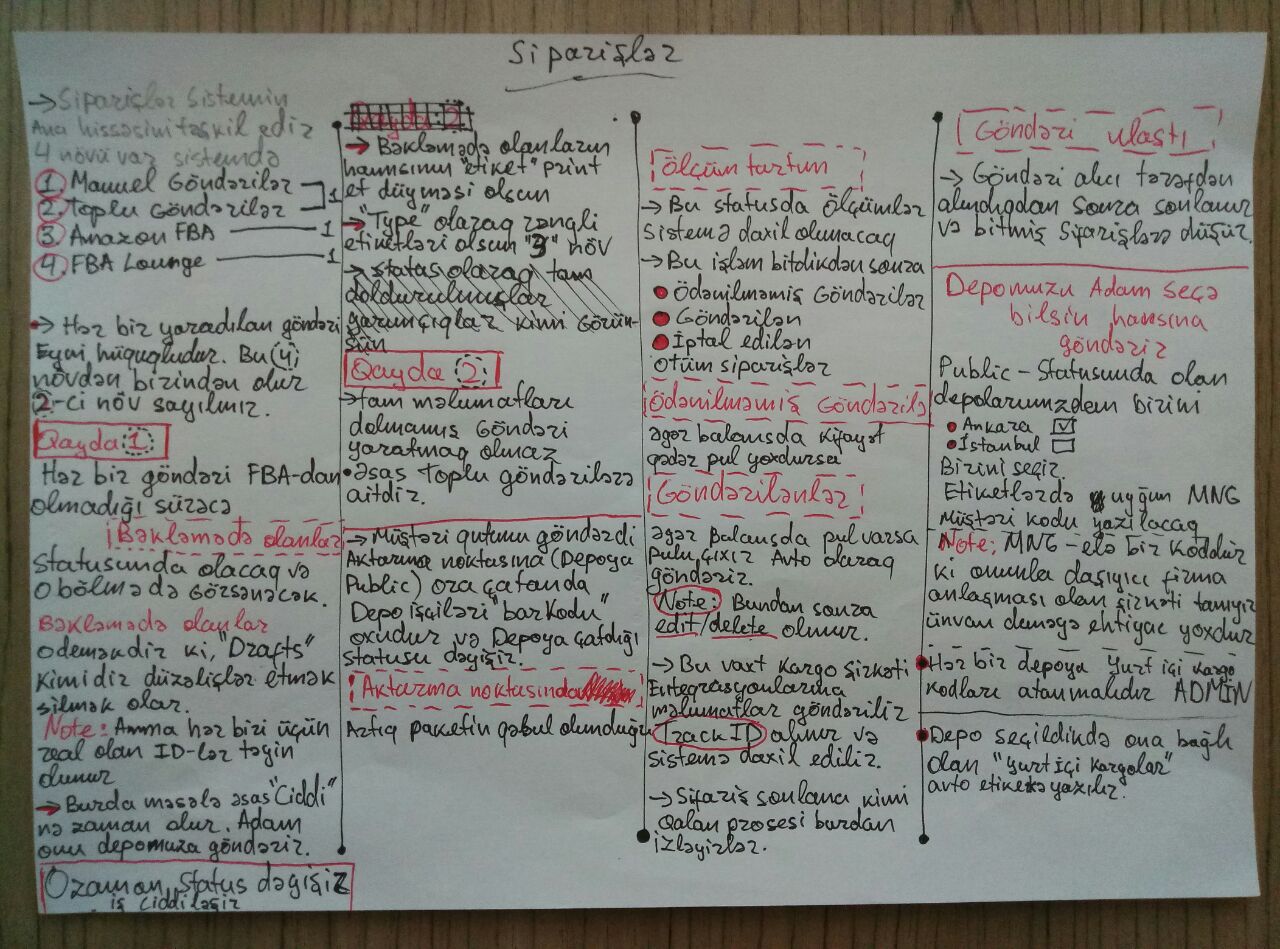 Siparişlər
→ Siparişlər Sistemin
Ana hissəsini təşkil edir
4 növü var sistemdə
1. Manuel Göndərilər
2. Toplu Göndərilər 1
3. Amazon FBA 1
4. FBA Lounge 1
→ Hər bir yaradılan göndəri
Eyni hüquqludur. Bu (4)
növdən birindən olur
2-ci növ sayılmır.
Qayda 1
Hər bir göndəri FBA-dan
olmadığı sürəcə
Bəkləmədə olanlar
Statusunda olacaq və
O bölmədə görsənəcək.
Bəkləmədə olanlar
o deməkdir ki, "Drafts"
kimidir düzəlişlər etmək
silmək olar.
Note: Amma hər biri üçün
real olan ID-lər təyin
olunur
→ Burda məsələ əsas "Ciddi"
nə zaman olur. Adam
onu depomuza göndərir.
O zaman status dəyişir
iş ciddiləşir
Qayda 2
→ Bəkləmədə olanların
hamısının "etiket" print
et düyməsi olsun
→ "Type" olaraq rəngli
etiketləri olsun "3" növ
→ status olaraq tam
doldurulmuşlar
yarımçıqlar kimi görün-
sün
Qayda 2
→ tam məlumatları
dolmamış Göndəri
yaratmaq olmaz
• Əsas Toplu göndərilərə
aitdir.
→ Müştəri qutunu göndərdi
Aktarma noktasına (Depoya
Public) ora çatanda
Depo işçiləri "barkodu"
oxudur və Depoya çatdığı
statusu dəyişir.
Aktarma noktasında
Artıq paketin qəbul olunduğu
Ölçüm tartım
→ Bu statusda ölçümlər
sistemə daxil olunacaq
→ Bu işləm bitdikdən sonra
• Ödənilməmiş Göndərilər
• Göndərilən
• İptal edilən
ötüm siparişlər
Ödənilməmiş Göndərilə
əgər balansda kifayət
qədər pul yoxdursa
Göndərilənlər
əgər Balansda pul varsa
pulu çıxır Avto olaraq
göndərir.
Note: Bundan sonra
edit/delete olunur.
→ Bu vaxt kargo şirkəti
Entegrasyonlarına
məlumatlar göndərilir
Track ID alınır və
sistemə daxil edilir.
→ Sifariş sonlana kimi
Qalan prosesi burdan
izləyirlər.
Göndəri ulaştı
→ Göndəri alıcı tərəfdən
alındıqdan sonra sonlanır
və bitmiş siparişlərə düşür.
Depomuzu Adam seçə
bilsin hansına
göndərir
Public - Statusunda olan
depolarımızdan birini
• Ankara ☑
• İstanbul ☐
Birini seçir
Etiketlərdə uyğun MNG
Müştəri kodu yazılacaq
Note: MNG - elə bir koddur
ki onunla daşıyıcı firma
anlaşması olan şirkəti tanıyır
ünvan deməyə ehtiyac yoxdur
• Hər bir depoya Yurt içi kargo
kodları atanmalıdır ADMIN
• Depo seçildikdə ona bağlı
olan "yurt içi kargolar"
avto etiketə yazılır.